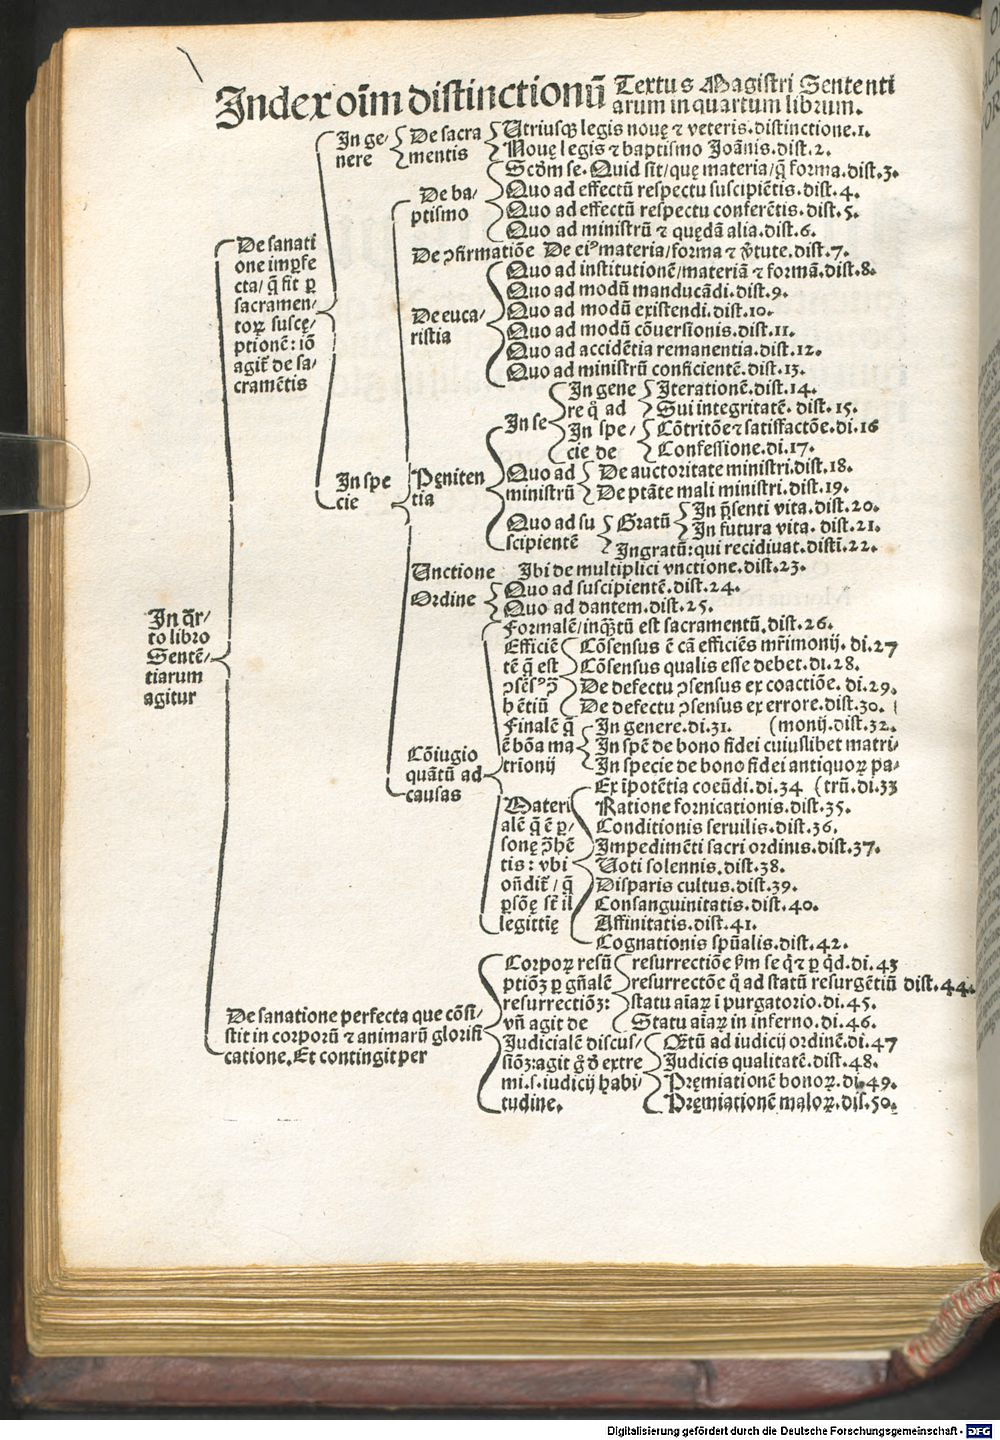 Index oīm distinctionū Textus Magistri Sententi
arum in quartum librum.
In ge-
nere
De sacra
mentis
Utriusqꝫ legis nouę ⁊ veteris. distinctione.1.
Nouę legis ⁊ baptismo Joānis. dist.2.
De ba/
ptismo
Scd̄m se. Quid sit/ quę materia/ q̄ forma. dist.3.
Quo ad effectū respectu suscipiētis. dist.4.
Quo ad effectū respectu conferētis. dist.5.
Quo ad ministrū ⁊ quędā alia. dist.6.
De ꝯfirmatiōe De eiꝰ materia/ forma ⁊ v̄tute. dist.7.
De sanati
one imꝑfe
cta/ q̄ fit ꝑ
sacramen-
toꝝ suscę/
ptionē: iō
agit̄ de sa-
cramētis
De euca-
ristia
Quo ad institutionē/ materiā ⁊ formā. dist.8.
Quo ad modū manducādi. dist.9.
Quo ad modū existendi. dist.10.
Quo ad modū cōuersionis. dist.11.
Quo ad accidētia remanentia. dist.12.
Quo ad ministrū conficientē. dist.13.
In spe
cie
Pęniten
tia
In se
In gene
re q̊ ad
Iterationē. dist.14.
Sui integritatē. dist.15.
In spe/
cie de
Cōtritōe ⁊ satisfactōe. di.16
Confessione. di.17.
Quo ad
ministrū
De auctoritate ministri. dist.18.
De ptāte mali ministri. dist.19.
Quo ad su
scipientē
Gratū
In p̄senti vita. dist.20.
In futura vita. dist.21.
Ingratū: qui recidiuat. disti.22.
Unctione Ibi de multiplici vnctione. dist.23.
Ordine
Quo ad suscipientē. dist.24.
Quo ad dantem. dist.25.
In q̄r/
to libro
Sentē-
tiarum
agitur
Cōiugio
quātū ad
causas
Formalē/ inq̄tū est sacramentū. dist.26.
Efficiē
tē q̄ est
ꝯsēsꝰ ꝓ̄
hētiū
Cōsensus ē cā efficiēs mr̄imonij. di.27
Cōsensus qualis esse debet. di.28.
De defectu ꝯsensus ex coactiōe. di.29.
De defectu ꝯsensus ex errore. dist.30. (
Finalē q̄
ē bōa ma
trīonij
In genere. di.31. (monij. dist.32.
In spē de bono fidei cuiuslibet matri-
In specie de bono fidei antiquoꝝ pa-
Materi
alē q̄ ē ꝑ/
sonę ꝯ̄hē
tis: vbi
oñdit̄/ q̄
ꝑsōę st̄ il
legittię
Ex īpotētia coeūdi. di.34 (trū. di.33
Ratione fornicationis. dist.35.
Conditionis seruilis. dist.36.
Impedimēti sacri ordinis. dist.37.
Uoti solennis. dist.38.
Disparis cultus. dist.39.
Consanguinitatis. dist.40.
Affinitatis. dist.41.
Cognationis spūalis. dist.42.
De sanatione perfecta que cōsi-
stit in corporū ⁊ animarū glorifi
catione. Et contingit per
Corpoꝝ resū
ptiōꝫ ꝑ gn̄alē
resurrectiōꝫ:
vn̄ agit de
resurrectiōe ẜm se q̊ ⁊ ꝑ q̊d. di.43
resurrectōe q̊ ad statū resurgētiū dist.44.
statu aīaꝝ ī purgatorio. di.45.
Statu aīaꝝ in inferno. di.46.
Iudicialē discus-
siōꝫ: agit g̊ ḋ extre
mi.s. iudicij habi-
tudine.
Q̄tū ad iudicij ordinē. di.47
Judicis qualitatē. dist.48.
Pręmiationē bonoꝝ. di.49.
Pręmiationē maloꝝ. dis.50.
Digitalisierung gefördert durch die Deutsche Forschungsgemeinschaft - DFG